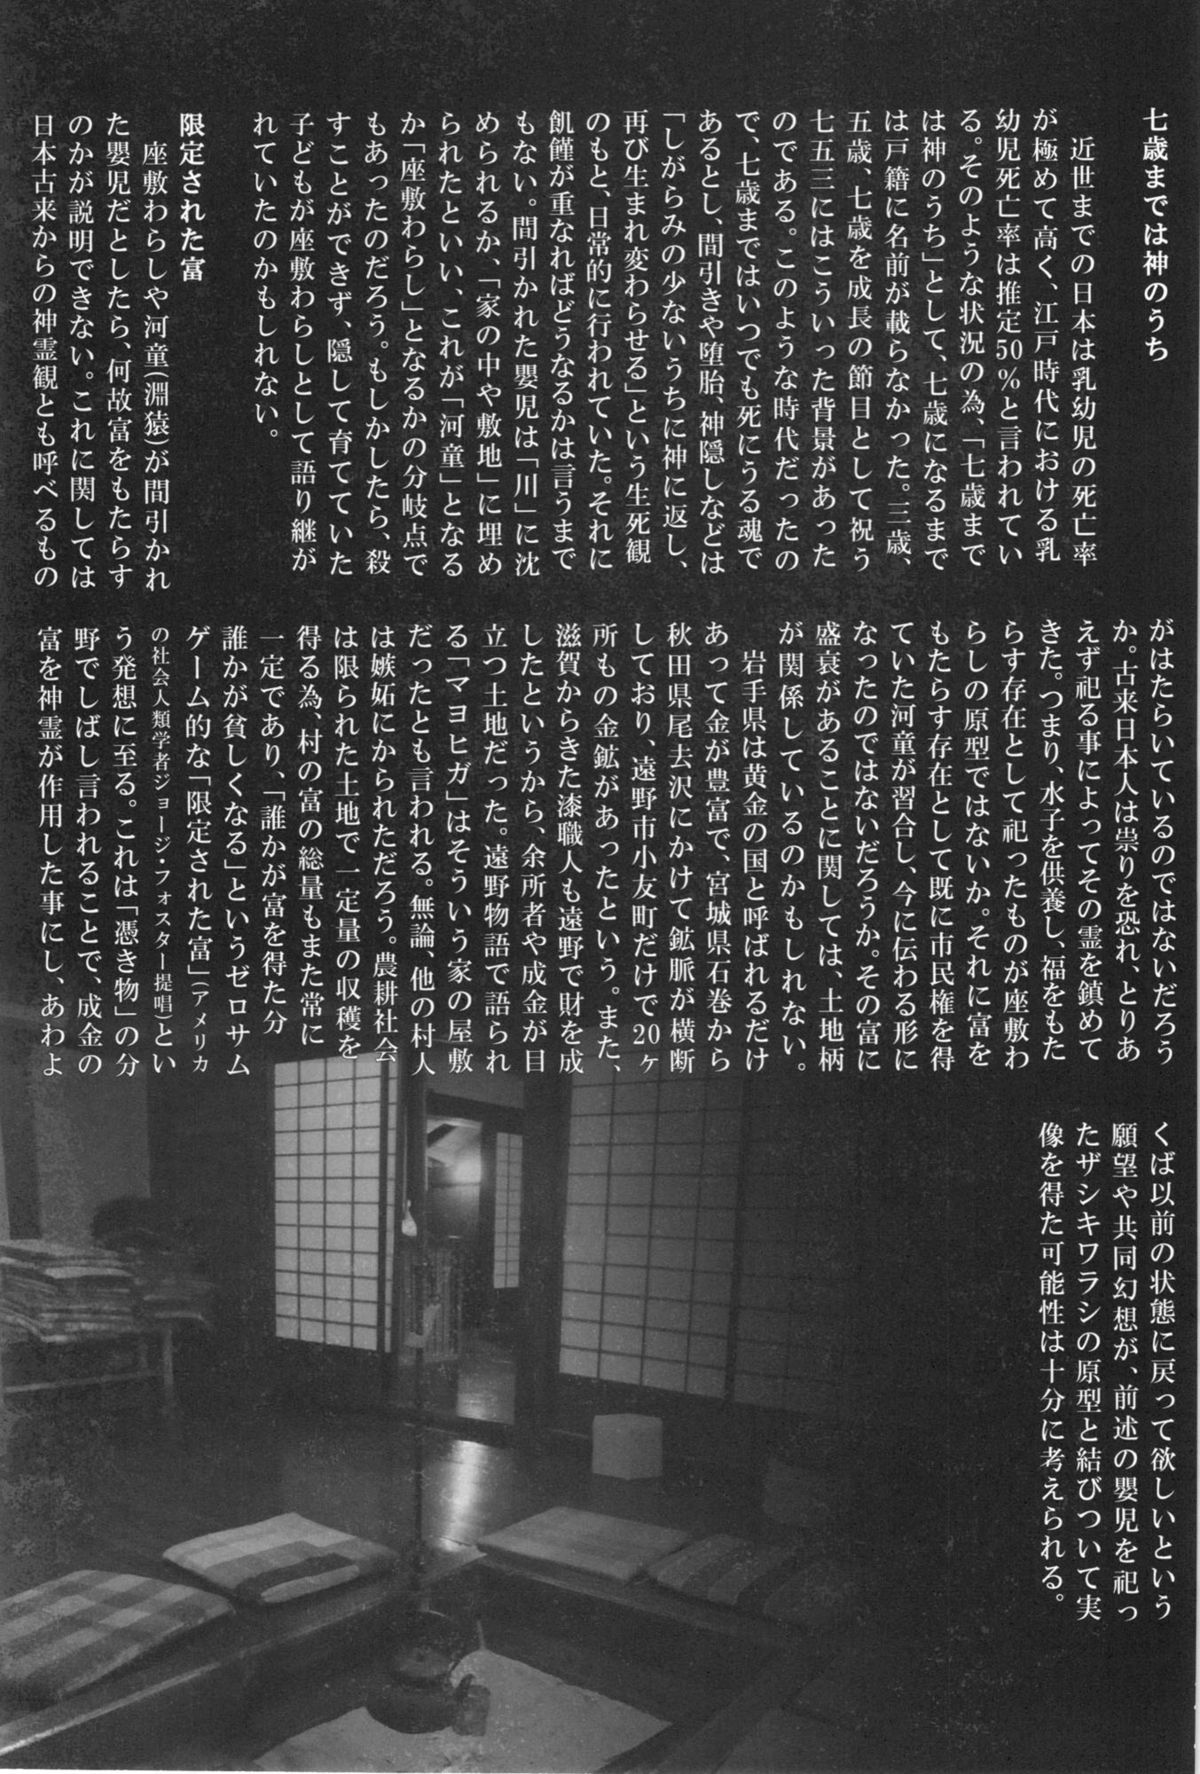 七歳までは神のうち
近世までの日本は乳幼児の死亡率
が極めて高く、江戸時代における乳
幼児死亡率は推定50%と言われてい
る。そのような状況の為、「七歳まで
は神のうち」として、七歳になるまで
は戸籍に名前が載らなかった。三歳、
五歳、七歳を成長の節目として祝う
七五三にはこういった背景があった
のである。このような時代だったの
で、七歳まではいつでも死にうる魂で
あるとし、間引きや堕胎、神隠しなどは
「しがらみの少ないうちに神に返し、
再び生まれ変わらせる」という生死観
のもと、日常的に行われていた。それに
飢饉が重なればどうなるかは言うまで
もない。間引かれた嬰児は「川」に沈
められるか、「家の中や敷地」に埋め
られたといい、これが「河童」となる
か「座敷わらし」となるかの分岐点で
もあったのだろう。もしかしたら、殺
すことができず、隠して育てていた
子どもが座敷わらしとして語り継が
れていたのかもしれない。
限定された富
座敷わらしや河童(淵猿)が間引かれ
た嬰児だとしたら、何故富をもたらす
のかが説明できない。これに関しては
日本古来からの神霊観とも呼べるもの
がはたらいているのではないだろう
か。古来日本人は祟りを恐れ、とりあ
えず祀る事によってその霊を鎮めて
きた。つまり、水子を供養し、福をもた
らす存在として祀ったものが座敷わ
らしの原型ではないか。それに富を
もたらす存在として既に市民権を得
ていた河童が習合し、今に伝わる形に
なったのではないだろうか。その富に
盛衰があることに関しては、土地柄
が関係しているのかもしれない。
岩手県は黄金の国と呼ばれるだけ
あって金が豊富で、宮城県石巻から
秋田県尾去沢にかけて鉱脈が横断
しており、遠野市小友町だけで20ヶ
所もの金鉱があったという。また、
滋賀からきた漆職人も遠野で財を成
したというから、余所者や成金が目
立つ土地だった。遠野物語で語られ
る「マヨヒガ」はそういう家の屋敷
だったとも言われる。無論、他の村人
は嫉妬にかられただろう。農耕社会
は限られた土地で一定量の収穫を
得る為、村の富の総量もまた常に
一定であり、「誰かが富を得た分
誰かが貧しくなる」というゼロサム
ゲーム的な「限定された富」(アメリカ
の社会人類学者ジョージ・フォスター提唱)とい
う発想に至る。これは「憑き物」の分
野でしばし言われることで、成金の
富を神霊が作用した事にし、あわよ
くば以前の状態に戻って欲しいという
願望や共同幻想が、前述の嬰児を祀っ
たザシキワラシの原型と結びついて実
像を得た可能性は十分に考えられる。